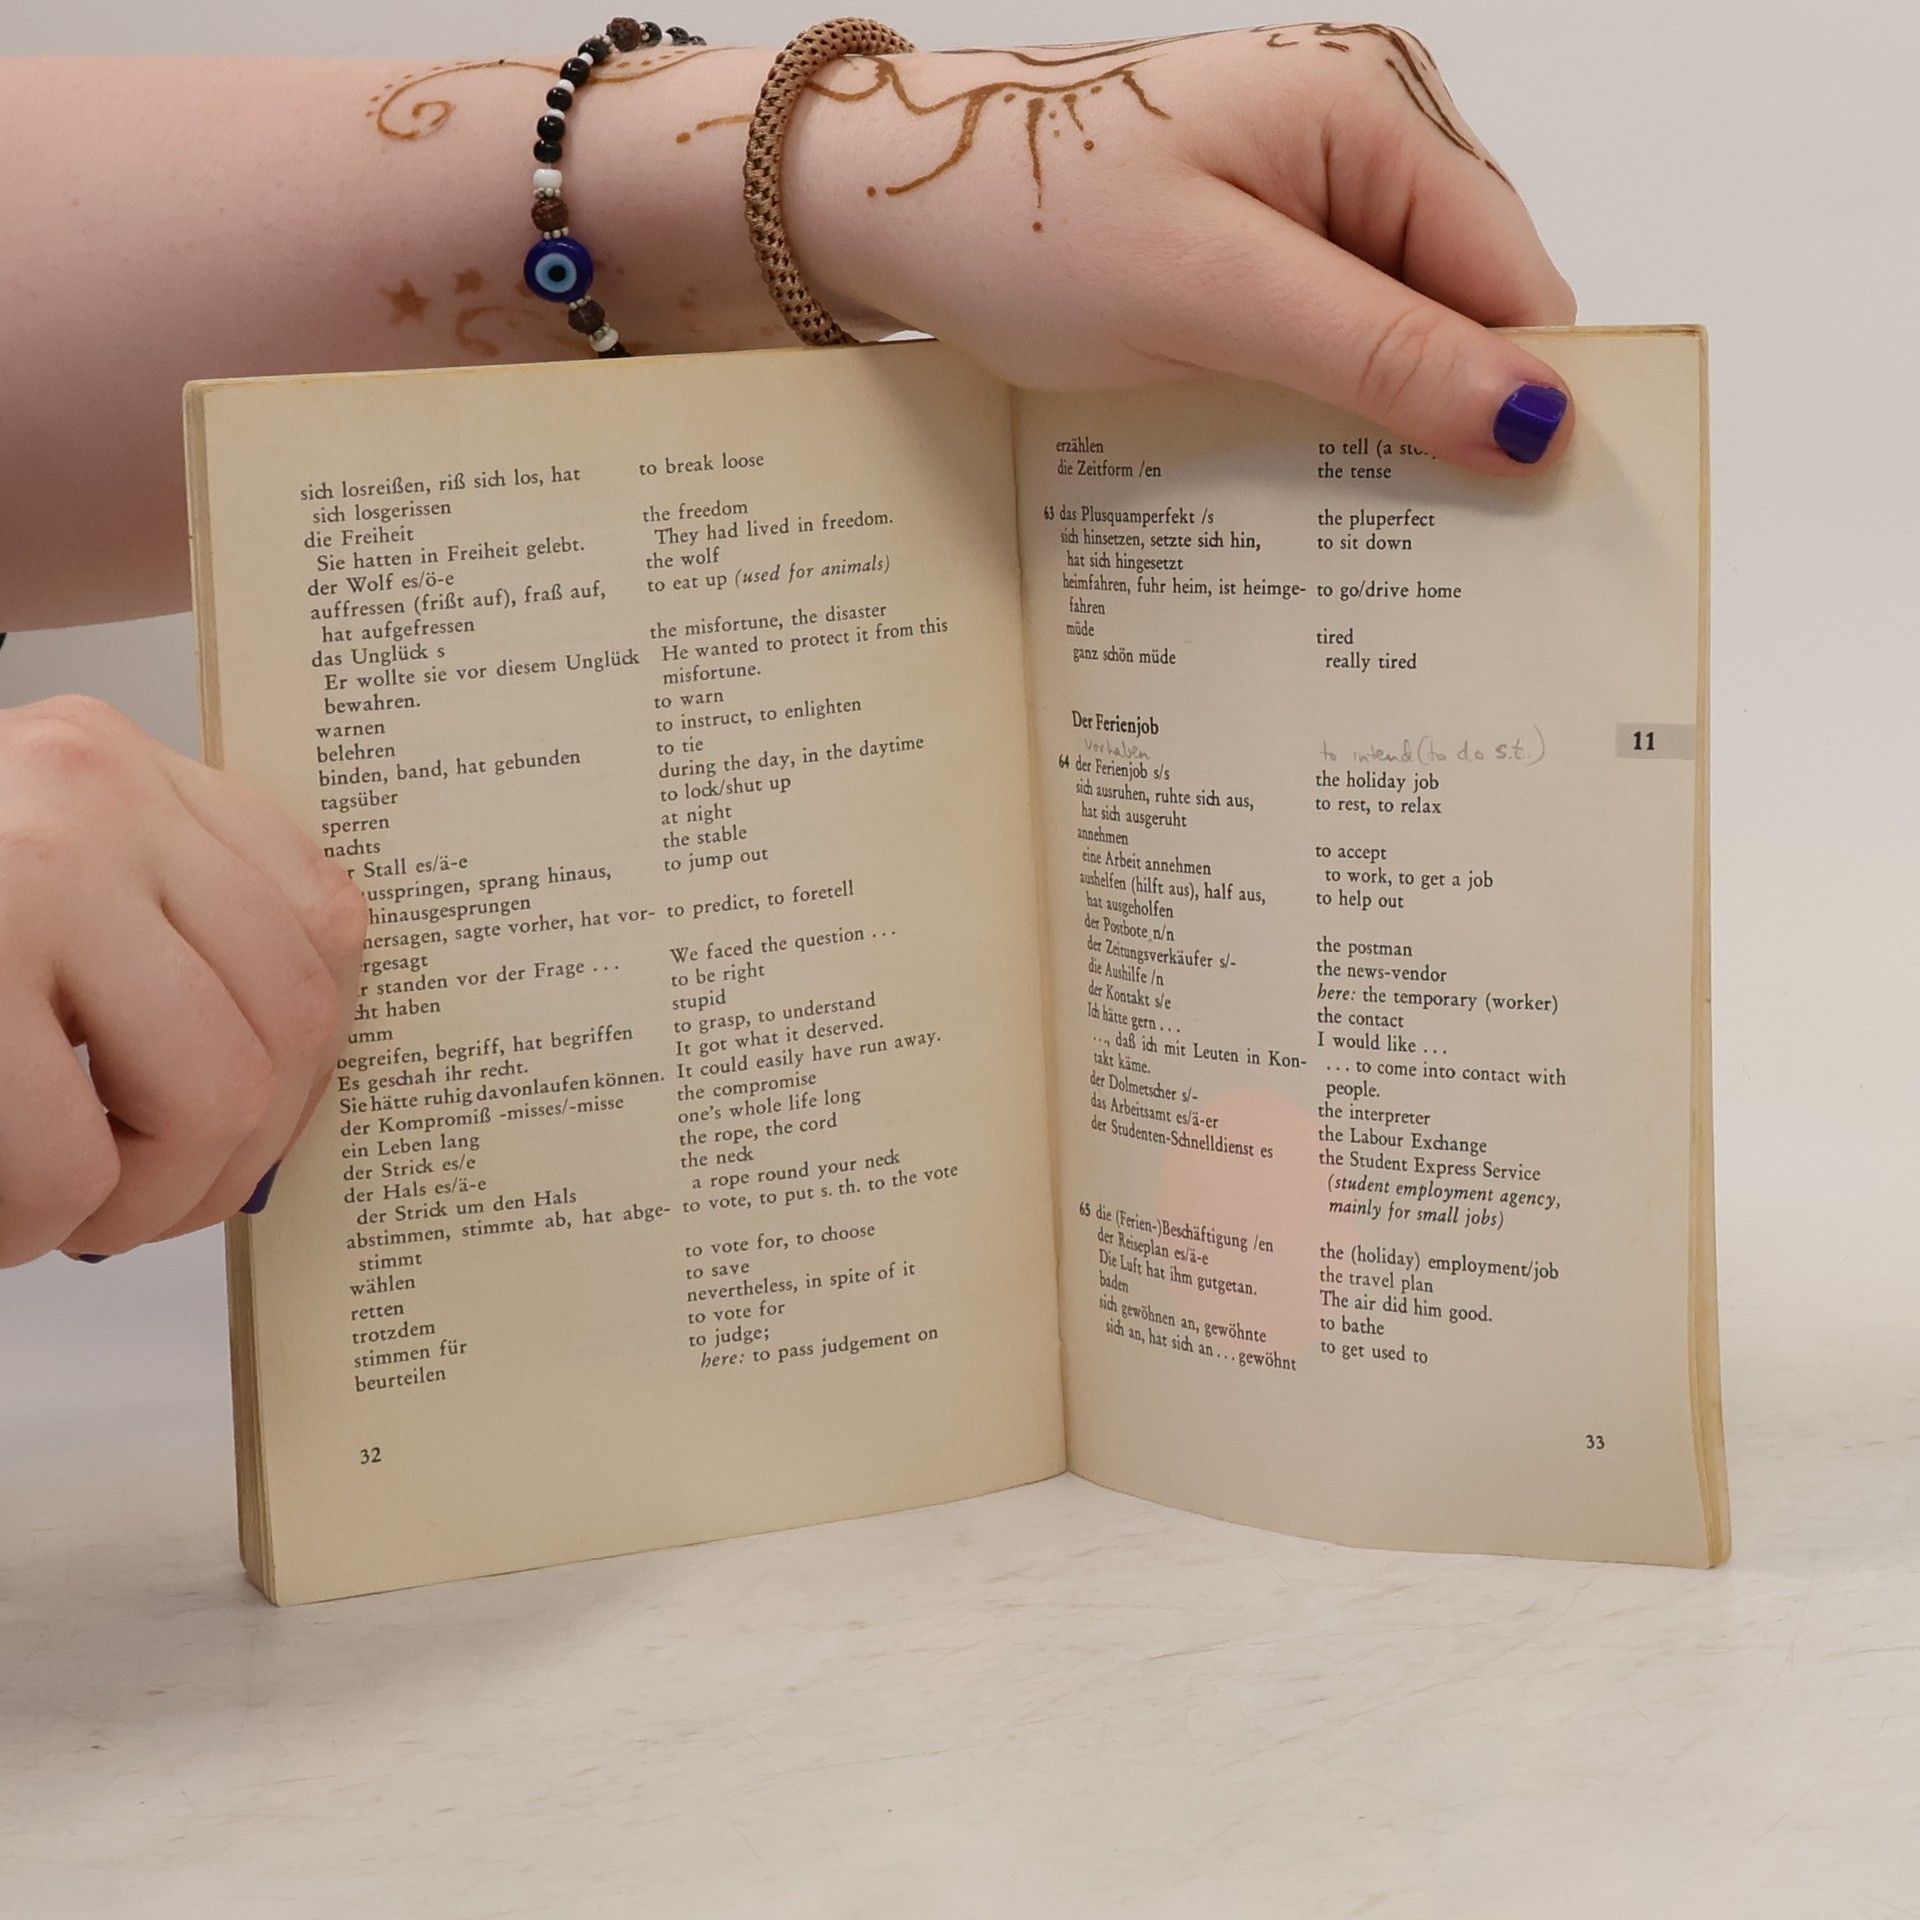 sich losreißen, riß sich los, hat
sich losgerissen
die Freiheit
Sie hatten in Freiheit gelebt.
der Wolf es/ö-e
auffressen (frißt auf), fraß auf,
hat aufgefressen
das Unglück s
Er wollte sie vor diesem Unglück
bewahren.
warnen
belehren
binden, band, hat gebunden
tagsüber
sperren
nachts
Stall es/ä-e
sprang hinaus,
hinausgesprungen
sagte vorher, hat vor-
standen vor der Frage ...
haben
begreifen, begriff, hat begriffen
Es geschah ihr recht.
Sie hätte ruhig davonlaufen können.
der Kompromiß -misses/-misse
ein Leben lang
der Strick es/e
der Hals es/ä-e
der Strick um den Hals
abstimmen, stimmte ab, hat abge-
stimmt
wählen
retten
trotzdem
stimmen für
beurteilen
to break loose
the freedom
They had lived in freedom.
the wolf
to eat up (used for animals)
the misfortune, the disaster
He wanted to protect it from this
misfortune.
to warn
to instruct, to enlighten
to tie
during the day, in the daytime
to lock/shut up
at night
the stable
to jump out
to predict, to foretell
We faced the question ...
to be right
stupid
to grasp, to understand
It got what it deserved.
It could easily have run away.
the compromise
one's whole life long
the rope, the cord
the neck
a rope round your neck
to vote, to put s. th. to the vote
to vote for, to choose
to save
nevertheless, in spite of it
to vote for
to judge;
here: to pass judgement on
32
erzählen
die Zeitform /en
63 das Plusquamperfekt /s
sich hinsetzen, setzte sich hin,
hat sich hingesetzt
heimfahren, fuhr heim, ist heimge-
fahren
müde
ganz schön müde
to tell (a
the tense
the pluperfect
to sit down
to go/drive home
tired
really tired
Der Ferienjob
11
vorhaben
64 der Ferienjob s/s
sich ausruhen, ruhte sich aus,
hat sich ausgeruht
annehmen
eine Arbeit annehmen
aushelfen (hilft aus), half aus,
hat ausgeholfen
der Postbote n/n
der Zeitungsverkäufer s/-
die Aushilfe /n
der Kontakt s/e
Ich hätte gern ...
..., daß ich mit Leuten in Kon-
takt käme.
der Dolmetscher s/-
das Arbeitsamt es/ä-er
der Studenten-Schnelldienst es
65 die (Ferien-)Beschäftigung /en
der Reiseplan es/ä-e
Die Luft hat ihm gutgetan.
baden
sich gewöhnen an, gewöhnte
sich an, hat sich an ... gewöhnt
to intend (to do s.t.)
the holiday job
to rest, to relax
to accept
to work, to get a job
to help out
the postman
the news-vendor
here: the temporary (worker)
the contact
I would like ...
... to come into contact with
people.
the interpreter
the Labour Exchange
the Student Express Service
(student employment agency,
mainly for small jobs)
the (holiday) employment/job
the travel plan
The air did him good.
to bathe
to get used to
33